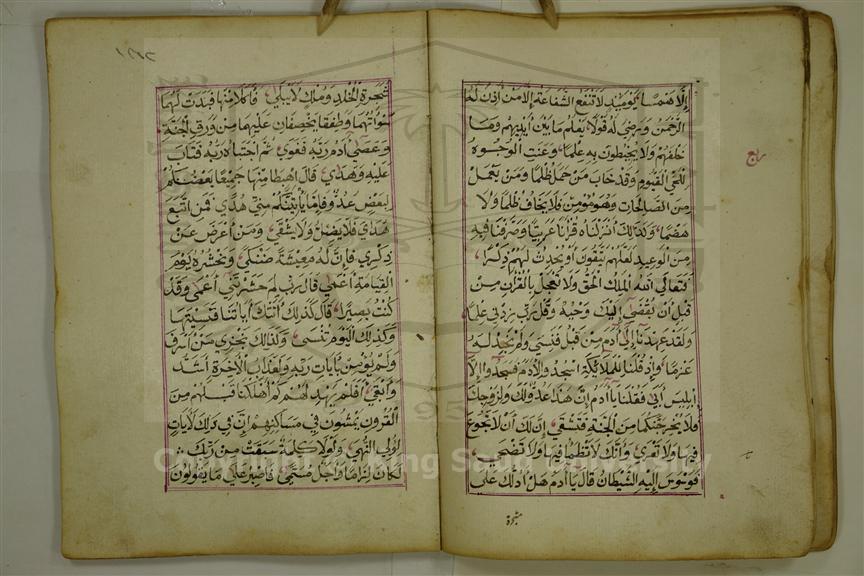 إلا همسا يومئذ لا تنفع الشفاعة إلا من أذن له
الرحمن ورضي له قولا يعلم ما بين أيديهم وما
خلفهم ولا يحيطون به علما وعنت الوجوه
للحي القيوم وقد خاب من حمل ظلما ومن يعمل
من الصالحات وهو مؤمن فلا يخاف ظلما ولا
هضما وكذلك أنزلناه قرآنا عربيا وصرفنا فيه
من الوعيد لعلهم يتقون أو يحدث لهم ذكرا
فتعالى الله الملك الحق ولا تعجل بالقرآن من
قبل أن يقضى إليك وحيه وقل رب زدني علما
ولقد عهدنا إلى آدم من قبل فنسي ولم نجد له
عزما وإذ قلنا للملائكة اسجدوا لآدم فسجدوا إلا
إبليس أبى فقلنا يا آدم إن هذا عدو لك ولزوجك
فلا يخرجنكما من الجنة فتشقى إن لك ألا تجوع
فيها ولا تعرى وأنك لا تظمأ فيها ولا تضحى
فوسوس إليه الشيطان قال يا آدم هل أدلك على
شجرة
ربع
شجرة الخلد وملك لا يبلى فأكلا منها فبدت لهما
سوآتهما وطفقا يخصفان عليهما من ورق الجنة
وعصى آدم ربه فغوى ثم اجتباه ربه فتاب
عليه وهدى قال اهبطا منها جميعا بعضكم
لبعض عدو فإما يأتينكم مني هدى فمن اتبع
هداي فلا يضل ولا يشقى ومن أعرض عن
ذكري فإن له معيشة ضنكا ونحشره يوم
القيامة أعمى قال رب لم حشرتني أعمى وقد
كنت بصيرا قال كذلك أتتك آياتنا فنسيتها
وكذلك اليوم تنسى وكذلك نجزي من أسرف
ولم يؤمن بآيات ربه ولعذاب الآخرة أشد
وأبقى أفلم يهد لهم كم أهلكنا قبلهم من
القرون يمشون في مساكنهم إن في ذلك لآيات
لأولي النهى ولولا كلمة سبقت من ربك
لكان لزاما وأجل مسمى فاصبر على ما يقولون
King Saud University